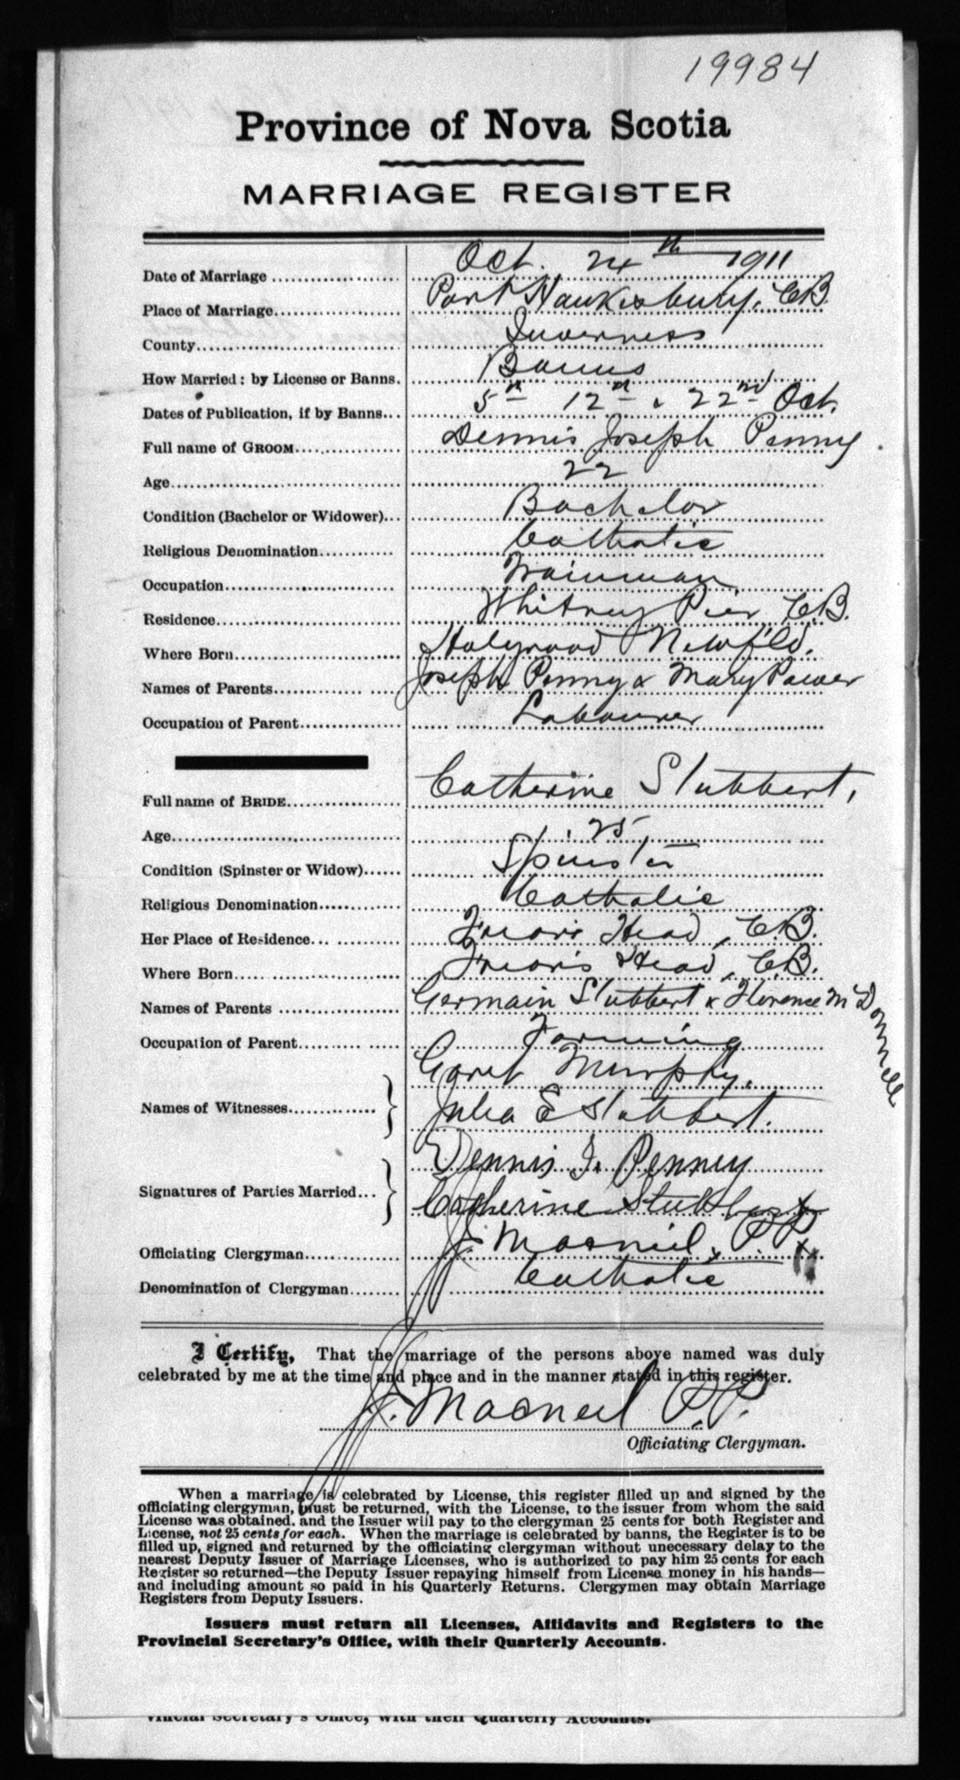 19984
Province of Nova Scotia
MARRIAGE REGISTER
Date of Marriage Oct. 24th 1911
Place of Marriage Port Hawkesbury, C.B.
County Inverness
How Married: by License or Banns. Banns
Dates of Publication, if by Banns 5th 12th & 22nd Oct.
Full name of GROOM Dennis Joseph Penny.
Age 22
Condition (Bachelor or Widower) Bachelor
Religious Denomination Catholic
Occupation Trainman
Residence Whitney Pier C.B.
Where Born Holyrood Newf'ld.
Names of Parents Joseph Penny & Mary Power
Occupation of Parent Labourer
Full name of BRIDE Catherine Stubbert,
Age 25
Condition (Spinster or Widow) Spinster
Religious Denomination Catholic
Her Place of Residence Friar's Head, C.B.
Where Born Friar's Head, C.B.
Names of Parents Germain Stubbert & Florence McDonnell
Occupation of Parent Farming
Names of Witnesses Garet Murphy.
Julia E Stubbert.
Signatures of Parties Married Dennis J. Penney
Catherine Stubbert
Officiating Clergyman J. Macneil, P.P.
Denomination of Clergyman Catholic
I Certify, That the marriage of the persons above named was duly
celebrated by me at the time and place and in the manner stated in this register.
J. Macneil P.P.
Officiating Clergyman.
When a marriage is celebrated by License, this register filled up and signed by the
officiating clergyman, must be returned, with the License, to the issuer from whom the said
License was obtained, and the Issuer will pay to the clergyman 25 cents for both Register and
License, not 25 cents for each. When the marriage is celebrated by banns, the Register is to be
filled up, signed and returned by the officiating clergyman without unecessary delay to the
nearest Deputy Issuer of Marriage Licenses, who is authorized to pay him 25 cents for each
Register so returned—the Deputy Issuer repaying himself from License money in his hands—
and including amount so paid in his Quarterly Returns. Clergymen may obtain Marriage
Registers from Deputy Issuers.
Issuers must return all Licenses, Affidavits and Registers to the
Provincial Secretary's Office, with their Quarterly Accounts.
vincial Secretary's Office, with their Quarterly Accounts.